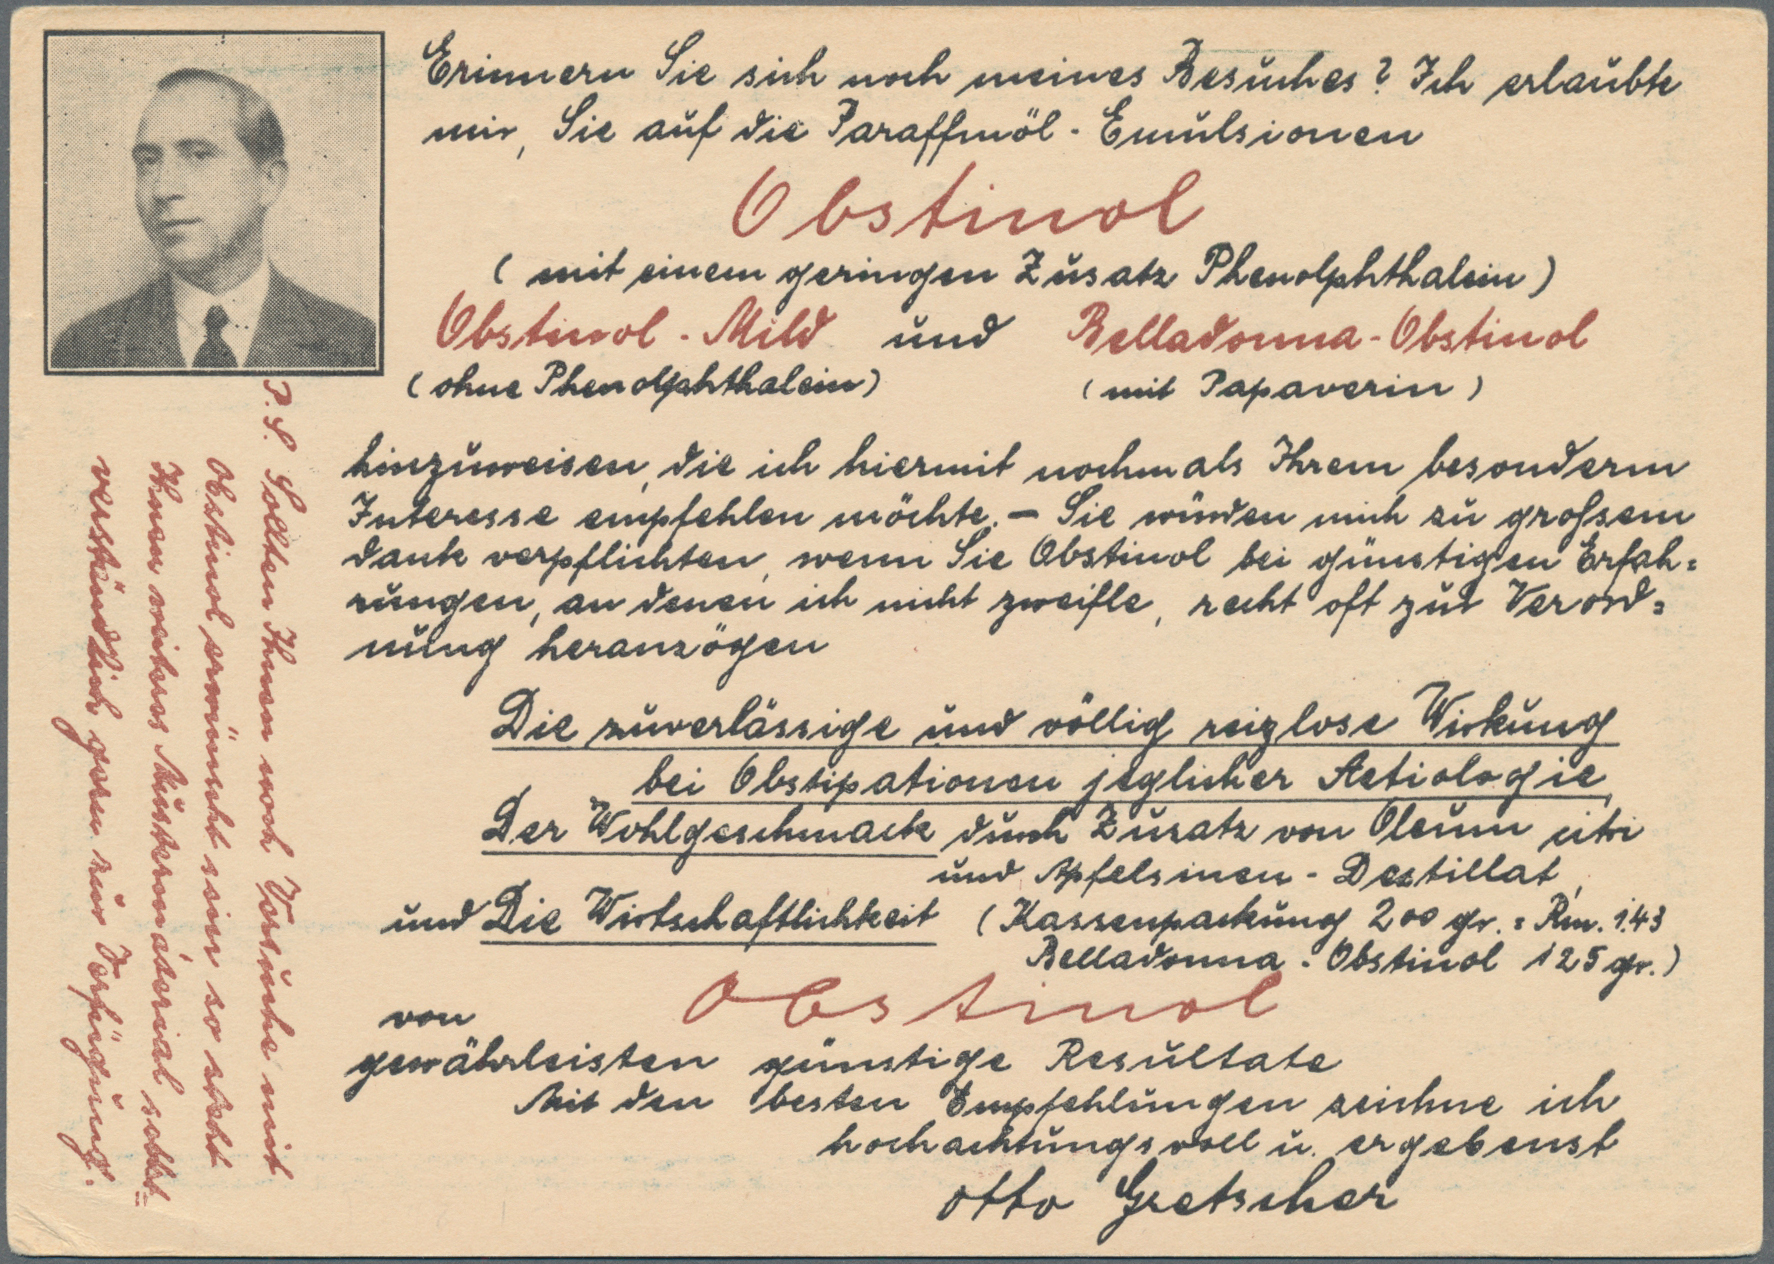 Erinnern Sie sich noch meines Besuches? Ich erlaubte
mir, Sie auf die Paraffinöl - Emulsionen
Obstinol
(mit einem geringen Zusatz Phenolphthalein)
Obstinol - Mild und Belladonna - Obstinol
(ohne Phenolphthalein) (mit Papaverin)
hinzuweisen, die ich hiermit nochmals Ihrem besonderm
Interesse empfehlen möchte. – Sie würden mich zu großem
Dank verpflichten, wenn Sie Obstinol bei günstigen Erfah=
rungen, an denen ich nicht zweifle, recht oft zur Verord=
nung heranzögen
Die zuverlässige und völlig reizlose Wirkung
bei Obstipationen jeglicher Aetiologie,
Der Wohlgeschmack durch Zusatz von Oleum citri
und Apfelsinen - Destillat,
und Die Wirtschaftlichkeit (Kassenpackung 200 gr. = Rm. 1.43
Belladonna - Obstinol 125 gr.)
von Obstinol
gewährleisten günstige Resultate
Mit den besten Empfehlungen zeichne ich
hochachtungsvoll u. ergebenst
Otto Gretscher
P.S. Sollten Ihnen noch Versuche mit
Obstinol erwünscht sein so steht
Ihnen weiteres Mustermaterial selbst=
verständlich gern zur Verfügung.